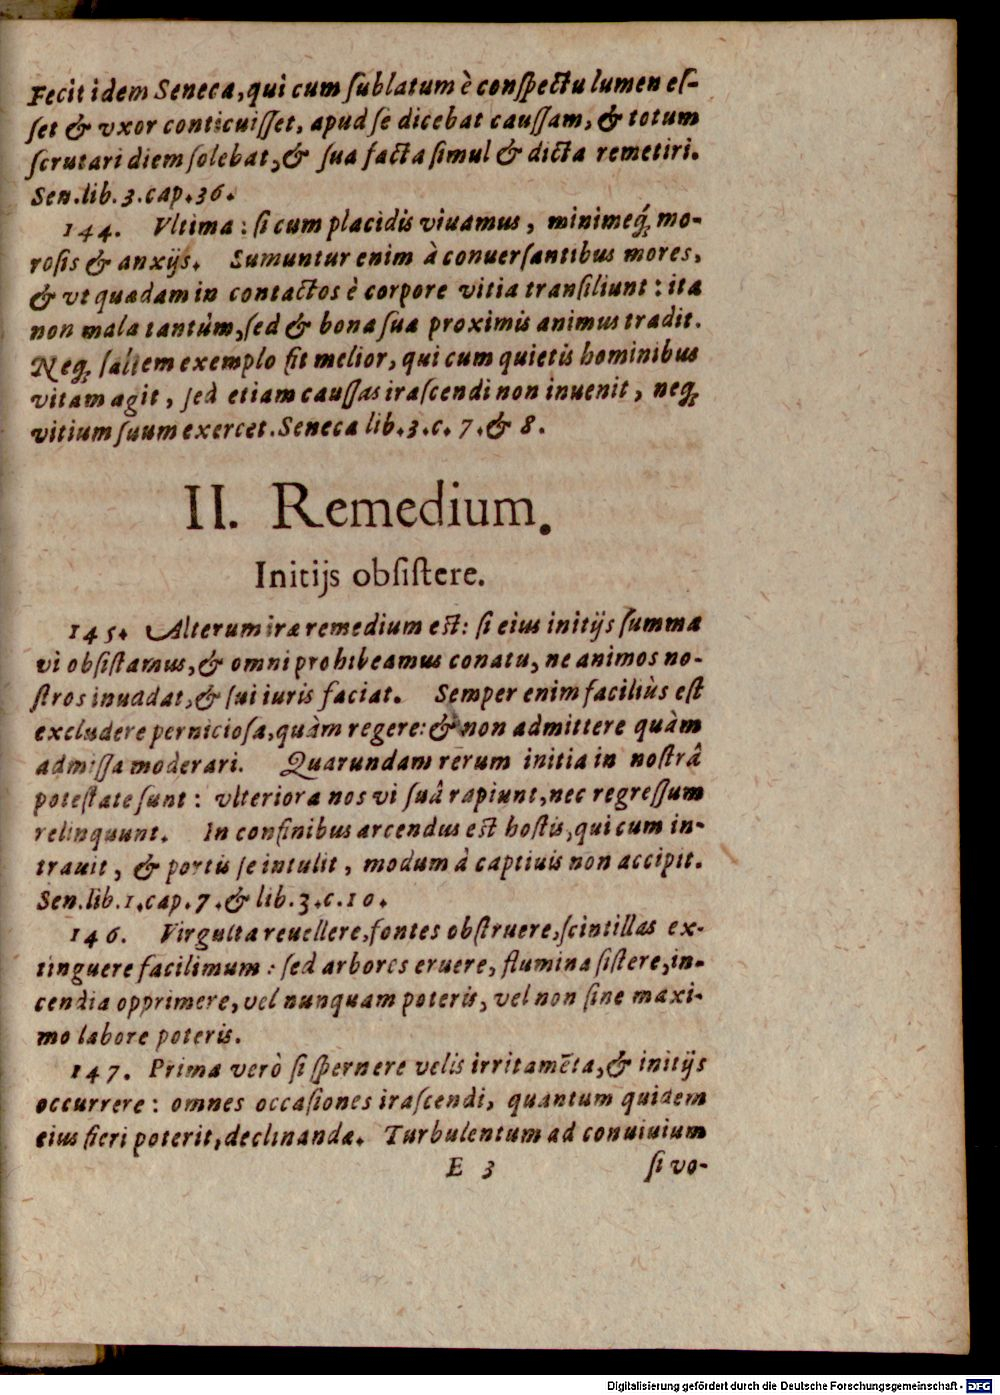 Fecit idem Seneca, qui cum ſublatum è conſpectu lumen eſ-
ſet & vxor conticuiſſet, apud ſe dicebat cauſſam, & totum
ſcrutari diem ſolebat, & ſua facta ſimul & dicta remetiri.
Sen. lib. 3. cap. 36.
144. Vltima: ſi cum placidis viuamus, minimeq́; mo-
roſis & anxijs. Sumuntur enim à conuerſantibus mores,
& vt quædam in contactos è corpore vitia tranſiliunt: ita
non mala tantùm, ſed & bona ſua proximis animus tradit.
Neq; ſaltem exemplo fit melior, qui cum quietis hominibus
vitam agit, ſed etiam cauſſas iraſcendi non inuenit, neq;
vitium ſuum exercet. Seneca lib. 3. c. 7. & 8.
II. Remedium.
Initijs obſiſtere.
145. Alterum iræ remedium eſt: ſi eius initijs ſumma
vi obſiſtamus, & omni prohibeamus conatu, ne animos no-
ſtros inuadat, & ſui iuris faciat. Semper enim faciliùs eſt
excludere pernicioſa, quàm regere: & non admittere quàm
admiſſa moderari. Quarundam rerum initia in noſtrâ
poteſtate ſunt: vlteriora nos vi ſuâ rapiunt, nec regreſſum
relinquunt. In confinibus arcendus eſt hoſtis, qui cum in-
trauit, & portis ſe intulit, modum à captiuis non accipit.
Sen. lib. 1. cap. 7. & lib. 3. c. 10.
146. Virgulta reuellere, fontes obſtruere, ſcintillas ex-
tinguere facilimum: ſed arbores eruere, flumina ſiſtere, in-
cendia opprimere, vel nunquam poteris, vel non ſine maxi-
mo labore poteris.
147. Prima verò ſi ſpernere velis irritamēta, & initijs
occurrere: omnes occaſiones iraſcendi, quantum quidem
eius fieri poterit, declinandæ. Turbulentum ad conuiuium
E 3 ſi vo-
Digitalisierung gefördert durch die Deutsche Forschungsgemeinschaft - DFG